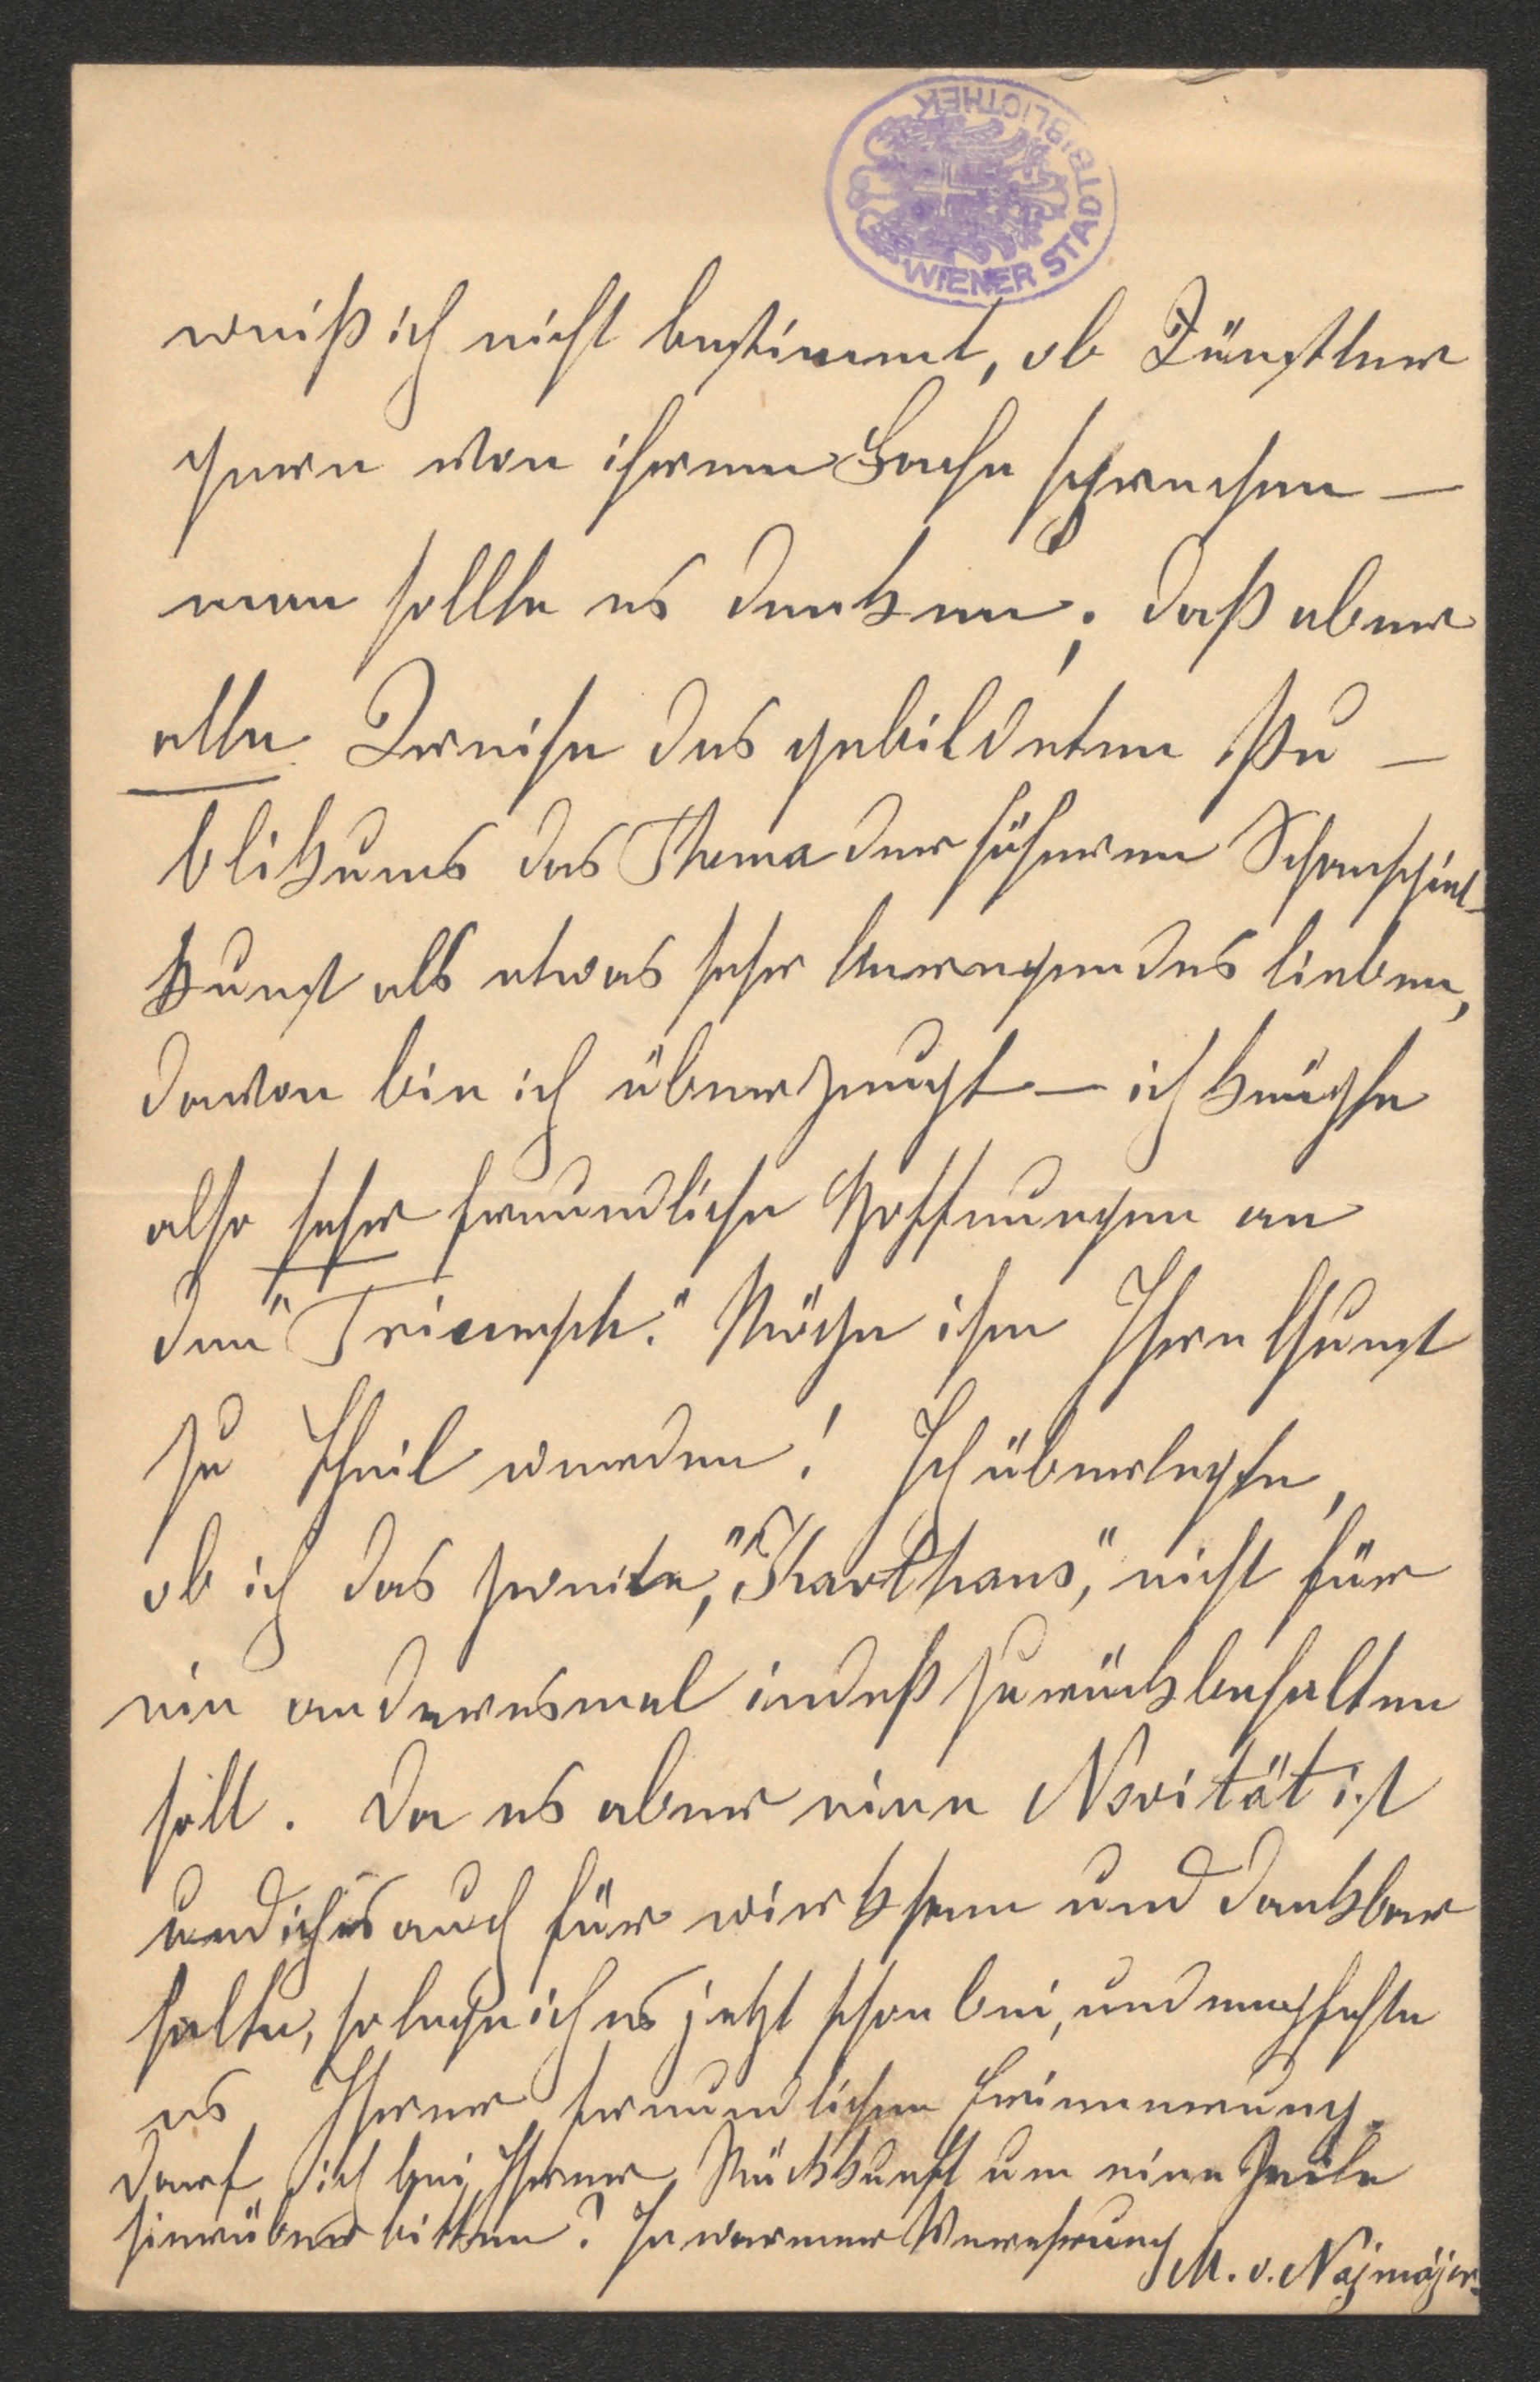 WIENER STADTBIBLIOTHEK
weiß ich nicht bestimmt, ob Künstler
gern von ihrem Fache sprechen —
man sollte es denken; daß aber
alle Kreise des gebildeten Pu-
blikums das Thema der höheren Schauspiel-
kunst als etwas sehr Anregendes lieben,
davon bin ich überzeugt — ich knüpfe
also sehr freundliche Hoffnungen an
den "Triumph." Möge ihm Ihre Gunst
zu Theil werden! Ich überlegte,
ob ich das zweite, "Karthaus," nicht für
ein anderesmal indeß zurückbehalten
soll. Da es aber eine Novität ist
und ich es auch für wirksam und dankbar
halte, so lege ich es jetzt schon bei, und empfehle
es Ihrer freundlichen Erinnerung.
Darf ich bei Ihrer Rückkunft um eine Zeile
hierüber bitten? In warmer Verehrung
M. v. Najmájer